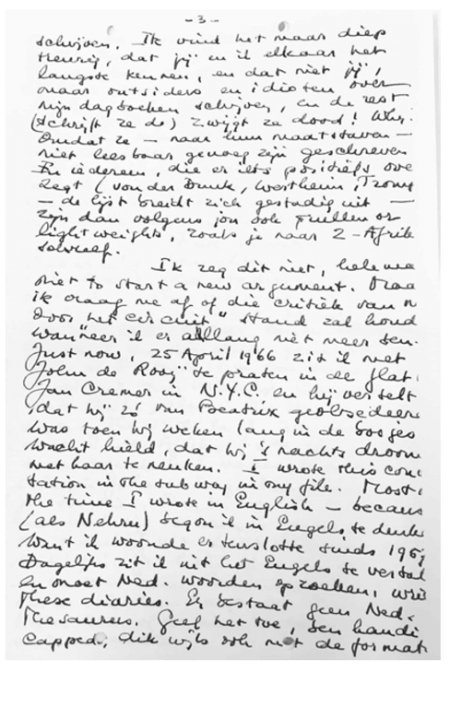 - 3 -
schrijven. Ik vind het maar diep
treurig, dat jij en ik elkaar het
langste kennen, en dat niet jij,
maar outsiders en idioten over
mijn dagboeken schrijven, en de rest
(schrijft ze de) zwijgt ze dood! Why?
Omdat ze — naar hun maatstaven —
niet leesbaar genoeg zijn geschreven
En iedereen, die er iets positiefs ove
zegt (von der Dunk, Wertheim,
— de lijst breidt zich gestadig uit —
zijn dan volgens jou ook prullen or
lightweights, zoals je naar Z-Afrik
schreef.
Ik zeg dit niet, helema
niet to start a new argument. Maa
ik vraag me af of die critiek van
door het circuit" stand zal houd
wanneer ik er allang niet meer ben.
Just now, 25 April 1966 zit ik met
John de Rooy te praten in de flat
Jan Cremer in N.Y.C. en hij vertelt
dat hij zó om Beatrix geobsedeer
was toen hij weken lang in de bosjes
wacht hield, dat hij 's nachts droom
met haar te neuken. I wrote this
in the subway in my file. Most
the time I wrote in English — becaus
(als Nehru) begon ik in Engels te denke
Want ik woonde er tenslotte sinds 195
Dagelijks zit ik uit het Engels te vertal
en moet Ned. woorden opzoeken,
these diaries. Er bestaat geen Ned.
Thesaurus. Geef het toe, een handi
capped, dikwijls ook met de format